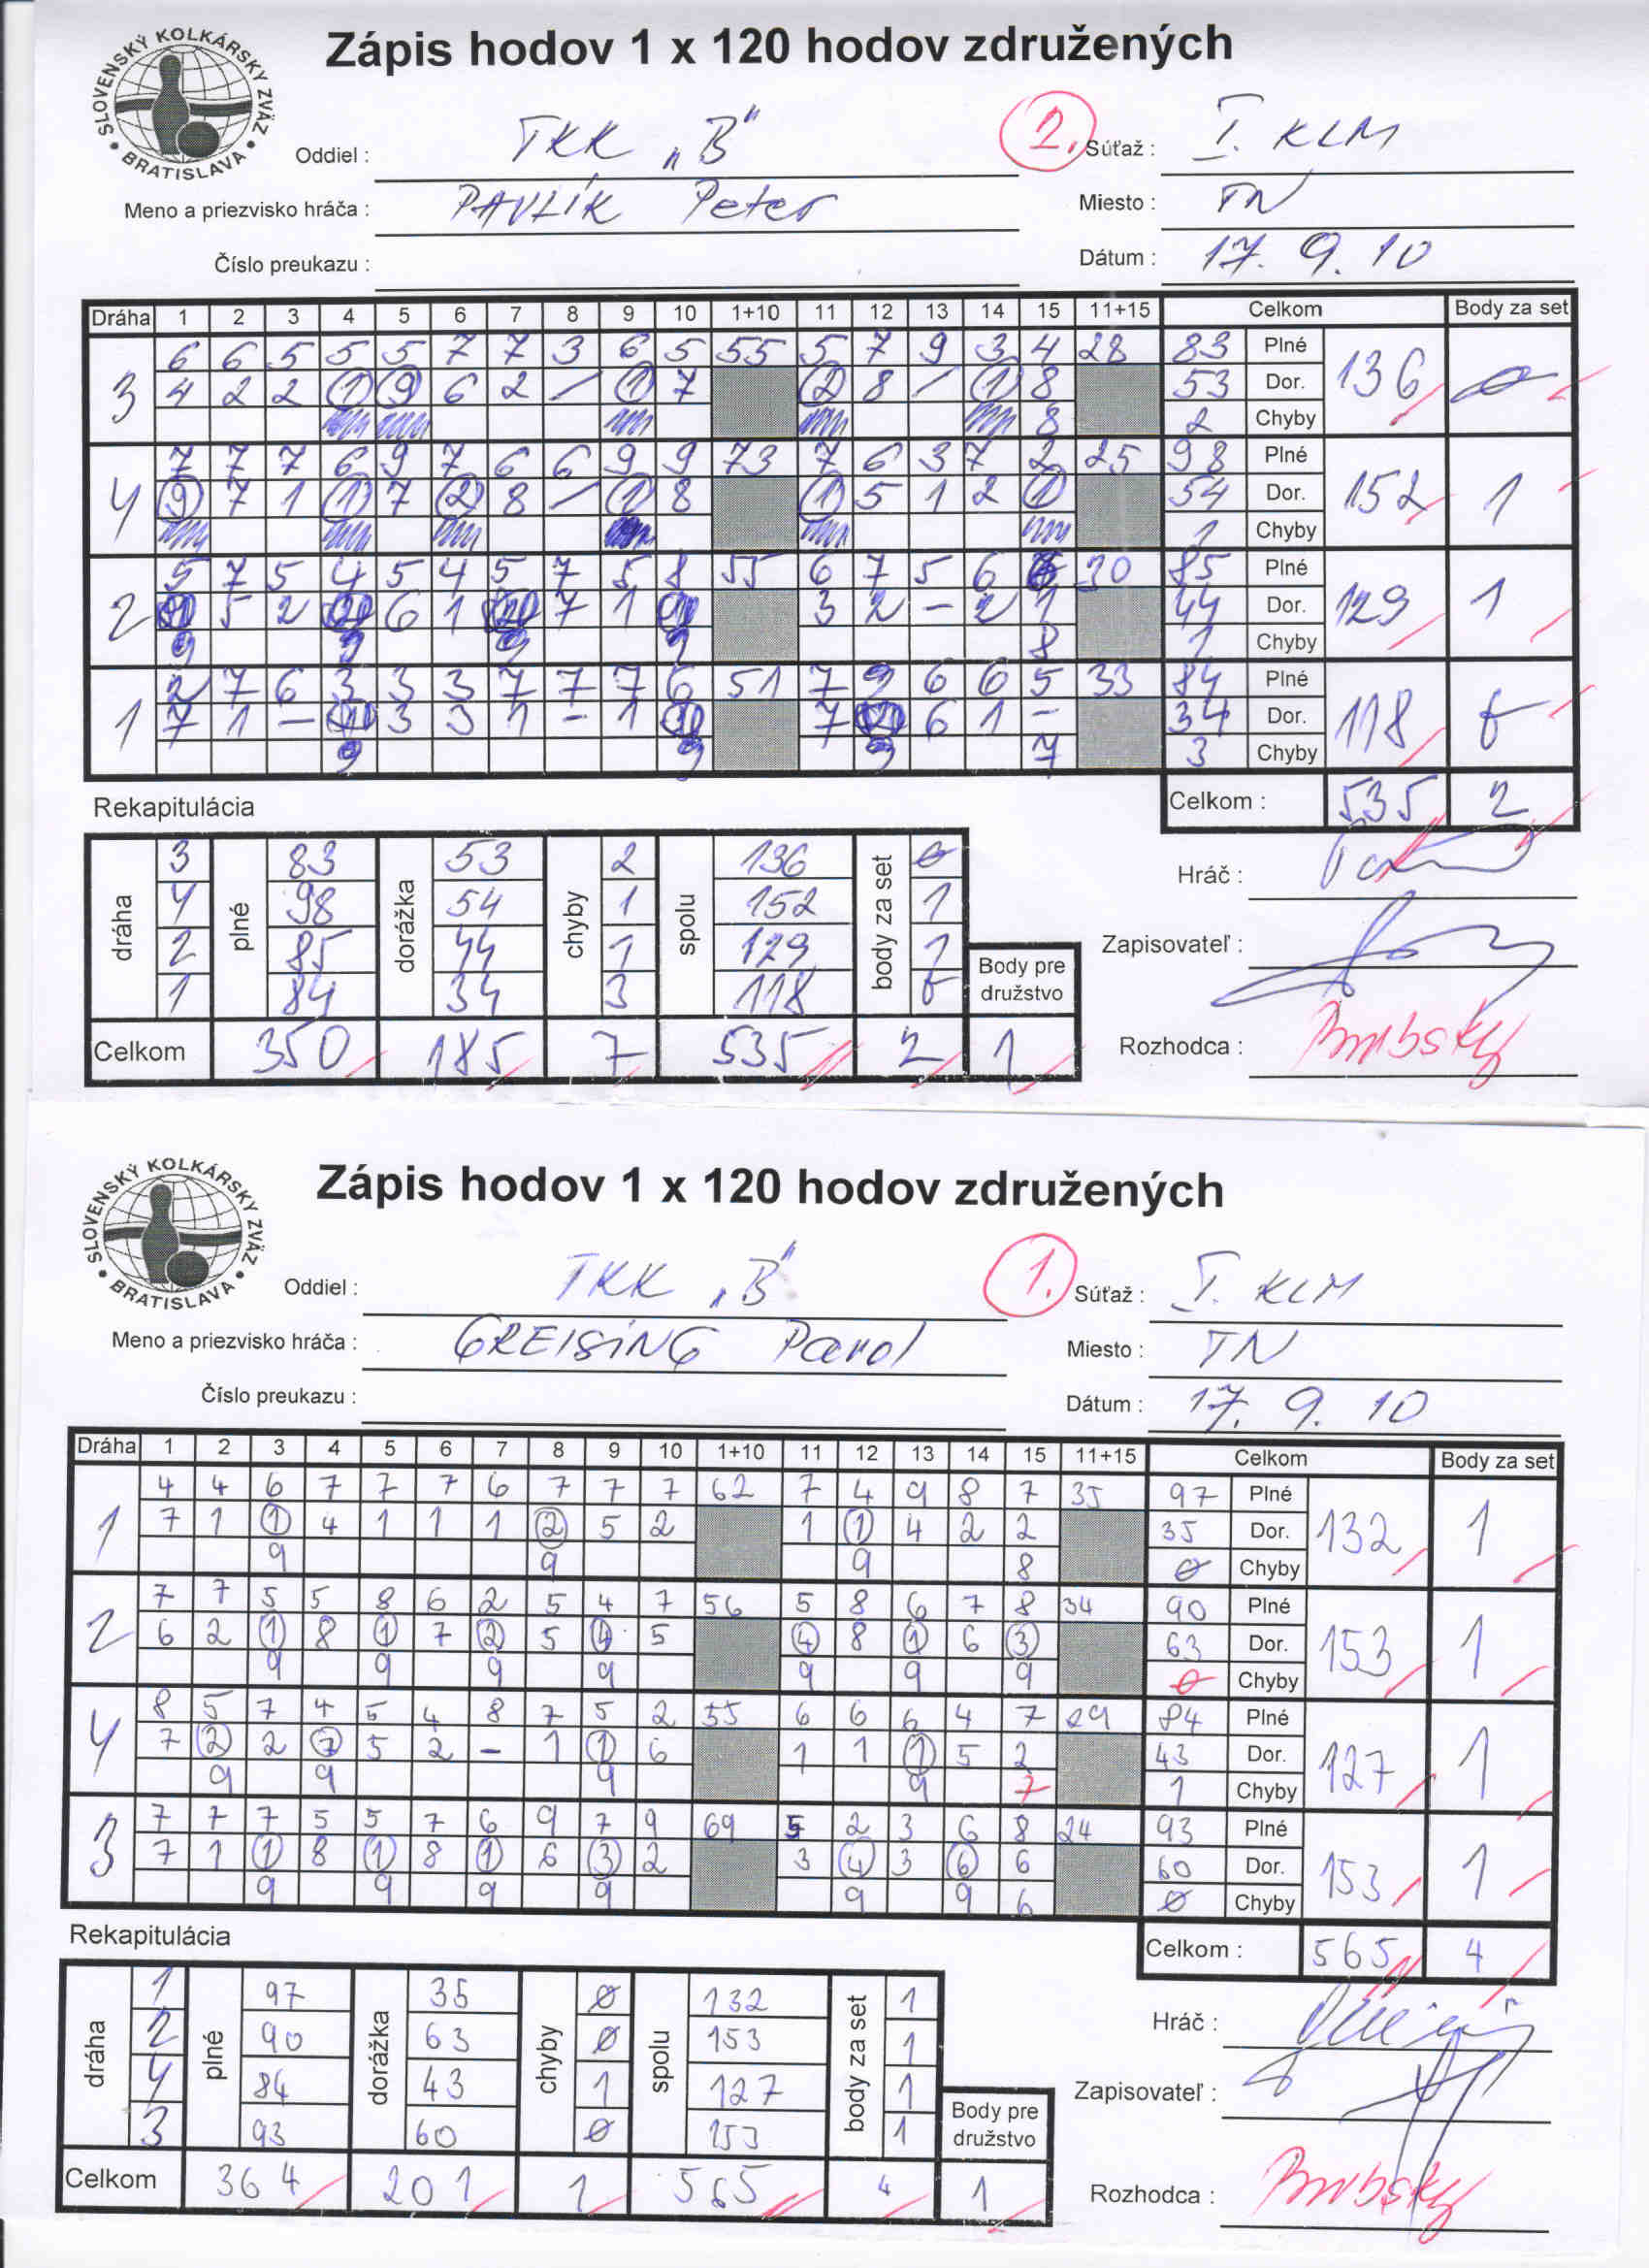 Zápis hodov 1 x 120 hodov združených
SLOVENSKÝ KOLKÁRSKY ZVÄZ • BRATISLAVA •
Oddiel : TKK „B" 2. Súťaž : I. KLM
Meno a priezvisko hráča : PAVLÍK Peter Miesto : TN
Číslo preukazu : Dátum : 17. 9. 10
Dráha 1 2 3 4 5 6 7 8 9 10 1+10 11 12 13 14 15 11+15 Celkom Body za set
6 6 5 5 5 7 7 3 6 5 55 5 7 9 3 4 28 83 Plné
3 4 2 2 1 9 6 2 / 1 7 2 8 / 1 8 53 Dor. 136 0
8 2 Chyby
7 7 7 6 9 7 6 6 9 9 73 7 6 3 7 2 25 98 Plné
4 9 7 1 1 7 2 8 / 1 8 1 5 1 2 1 54 Dor. 152 1
1 Chyby
5 7 5 4 5 4 5 7 5 8 55 6 7 5 6 6 30 85 Plné
2 5 2 6 1 7 1 3 2 - 2 1 44 Dor. 129 1
9 9 9 9 8 1 Chyby
2 7 6 3 3 3 7 7 7 6 51 7 9 6 6 5 33 84 Plné
1 7 1 - 3 3 1 - 1 7 6 1 - 34 Dor. 118 0
9 9 9 7 3 Chyby
Celkom : 535 2
Rekapitulácia
dráha plné dorážka chyby spolu body za set
3 83 53 2 136 0
4 98 54 1 152 1
2 85 44 1 129 1
1 84 34 3 118 0
Body pre družstvo
Celkom 350 185 7 535 2 1
Hráč :
Zapisovateľ :
Rozhodca :
Zápis hodov 1 x 120 hodov združených
SLOVENSKÝ KOLKÁRSKY ZVÄZ • BRATISLAVA •
Oddiel : TKK „B" 1. Súťaž : I. KLM
Meno a priezvisko hráča : GREISING Parol Miesto : TN
Číslo preukazu : Dátum : 17. 9. 10
Dráha 1 2 3 4 5 6 7 8 9 10 1+10 11 12 13 14 15 11+15 Celkom Body za set
4 4 6 7 7 7 6 7 7 7 62 7 4 9 8 7 35 97 Plné
1 7 1 1 4 1 1 1 2 5 2 1 1 4 2 2 35 Dor. 132 1
9 9 9 8 0 Chyby
7 7 5 5 8 6 2 5 4 7 56 5 8 6 7 8 34 90 Plné
2 6 2 1 8 1 7 2 5 4 5 4 8 1 6 3 63 Dor. 153 1
9 9 9 9 9 9 9 0 Chyby
8 5 7 4 5 4 8 7 5 2 55 6 6 6 4 7 29 84 Plné
4 7 2 2 7 5 2 - 1 1 6 1 1 1 5 2 43 Dor. 127 1
9 9 9 9 7 1 Chyby
7 7 7 5 5 7 6 9 7 9 69 5 2 3 6 8 24 93 Plné
3 7 1 1 8 1 8 1 6 3 2 3 4 3 6 6 60 Dor. 153 1
9 9 9 9 9 9 6 0 Chyby
Celkom : 565 4
Rekapitulácia
dráha plné dorážka chyby spolu body za set
1 97 35 0 132 1
2 90 63 0 153 1
4 84 43 1 127 1
3 93 60 0 153 1
Body pre družstvo
Celkom 364 201 1 565 4 1
Hráč :
Zapisovateľ :
Rozhodca :